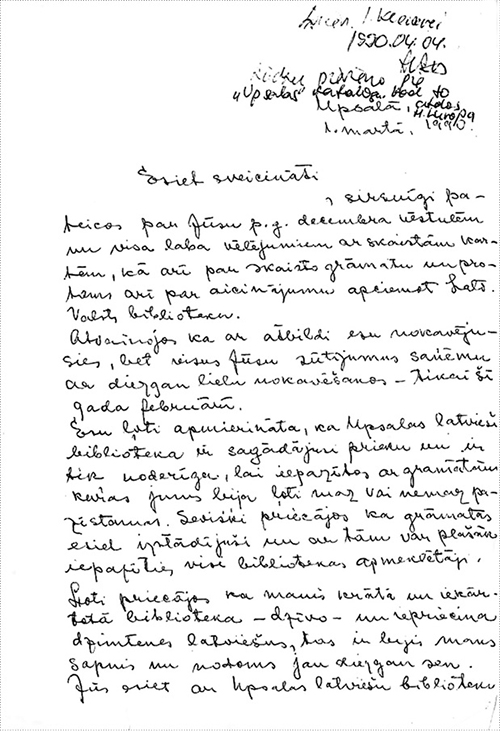 1990.04.04.
Lūdzu pievieno pie
"Upsalas" kataloga.
Upsalā,
1. martā. 1990.
Esiet sveicināti
, sirsnīgi pa-
teicos par Jūsu p.g. decembra vēstulēm
un visa laba vēlējumiem ar skaistām kar-
tēm, kā arī par skaisto grāmatu un pro-
tams arī par aicinājumu apciemot Lats.
Valsts biblioteku.
Atvainojos ka ar atbildi esu nokavēju-
sies, bet visus Jūsu sūtijumus saņēmu
ar diezgan lielu nokavēšanos - tikai šī
gada februārī.
Esu ļoti apmierināta, ka Upsalas latvieši
biblioteka ir sagādājusi prieku un ir
tik noderīga, lai iepazītos ar gramātām
kuŗas jums bija ļoti maz vai nemaz pa-
zīstamas. Sevišķi priecājos ka gramātas
esiet izstādījuši un ar tām var plašāk
iepazīties visi bibliotekas apmeklētāji.
Ļoti priecājos ka manis krātā un iekār-
totā biblioteka - dzīvo - un iepriecina
dzimtenes latviešus, tas ir bijis mans
sapnis un nodoms jau diezgan sen.
Jūs esiet ar Upsalas latviešu biblioteku